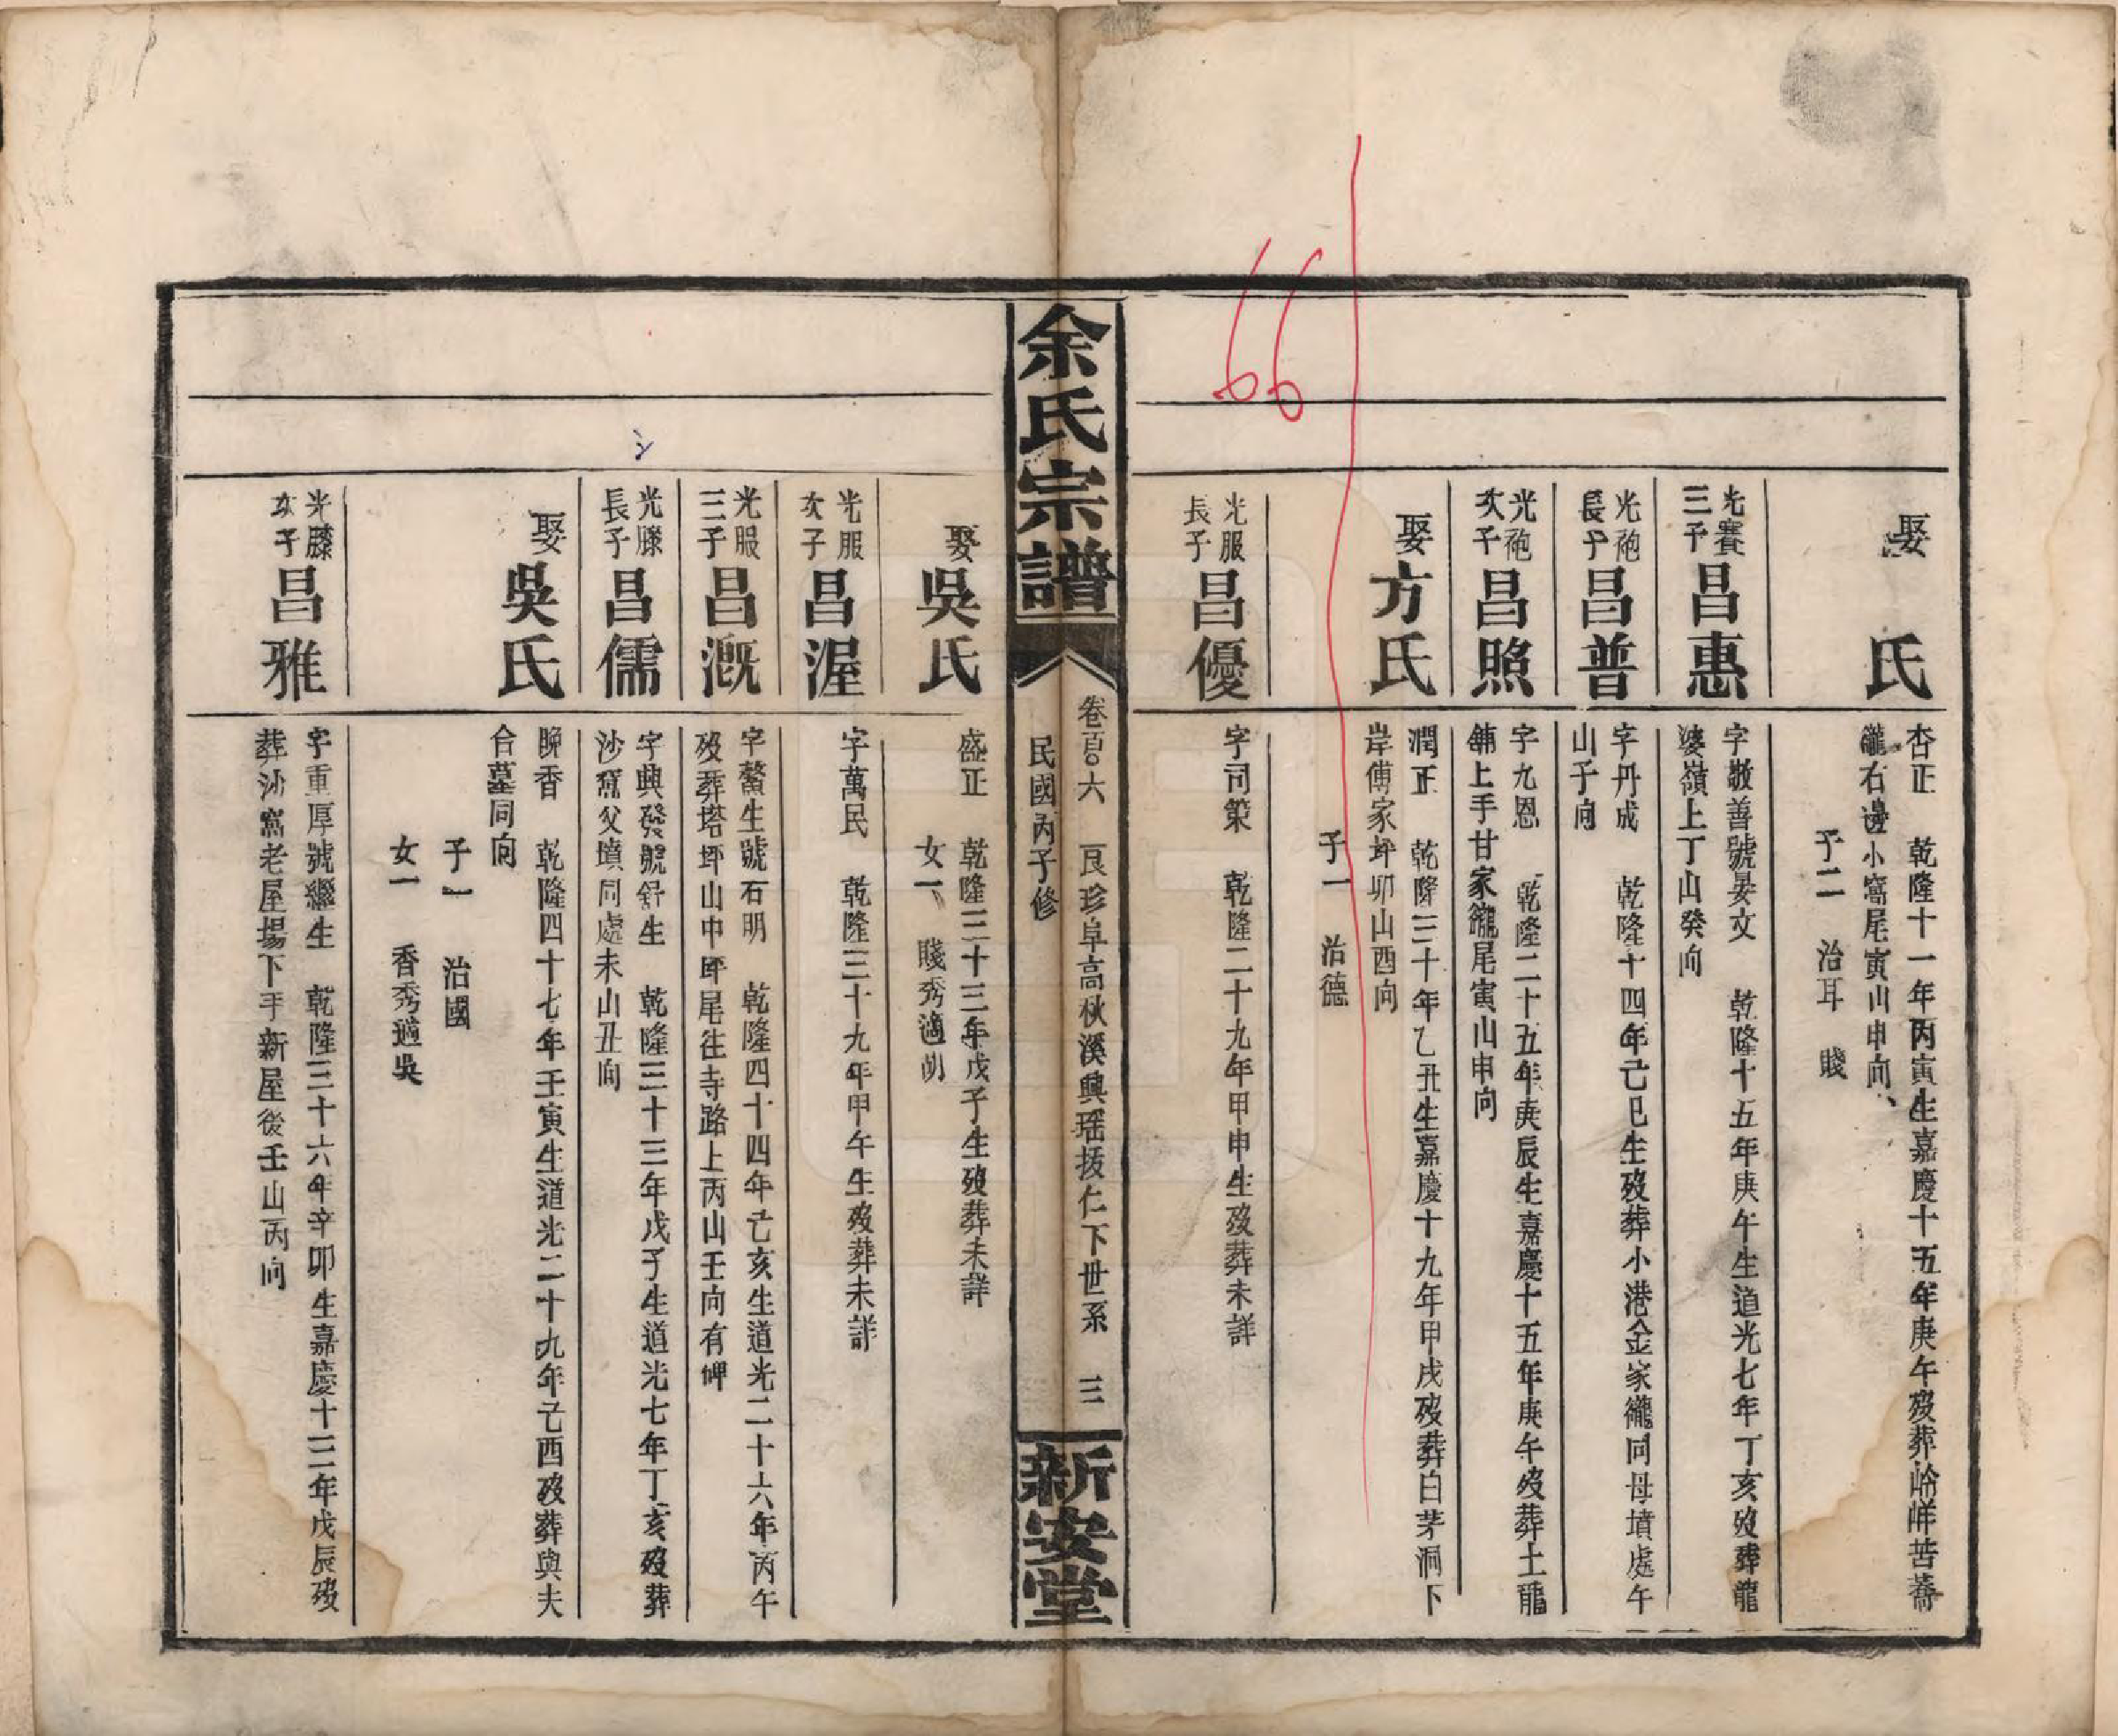 娶 氏
杏正 乾隆十一年丙寅生嘉慶十五年庚午歿葬岭嶭苦蕎
籠右邊小窩尾寅山申向
子二 治耳 賤
光賽三子 昌惠
字敬善號晏文 乾隆十五年庚午生道光七年丁亥歿葬龍
婆嶺上丁山癸向
光砲長子 昌普
字丹成 乾隆十四年己巳生歿葬小港金家籠同母墳處午
山子向
光砲次子 昌照
字九恩 乾隆二十五年庚辰生嘉慶十五年庚午歿葬土龍
舖上手甘家籠尾寅山申向
娶方氏
潤正 乾隆三十年乙丑生嘉慶十九年甲戌歿葬白茅洞下
岸傅家坪卯山酉向
子一 治德
光服長子 昌優
字司策 乾隆二十九年甲申生歿葬未詳
66
余氏宗譜
卷百〇六 艮珍阜高秋溪興瑶拔仁下世系 三
民國丙子修
新安堂
娶吳氏
盛正 乾隆三十三年戊子生歿葬未詳
女一 賤秀適胡
光服次子 昌渥
字萬民 乾隆三十九年甲午生歿葬未詳
光服三子 昌溉
字鰲生號石明 乾隆四十四年己亥生道光二十六年丙午
歿葬塔坪山中坪尾往寺路上丙山壬向有岬
光賸長子 昌儒
字典發號舒生 乾隆三十三年戊子生道光七年丁亥歿葬
沙窩父墳同處未山丑向
娶吳氏
晚香 乾隆四十七年壬寅生道光二十九年己酉歿葬與夫
合墓同向
子一 治國
女一 香秀適吳
光賸次子 昌雅
字重厚號繼生 乾隆三十六年辛卯生嘉慶十三年戊辰歿
葬沙窩老屋場下手新屋後壬山丙向